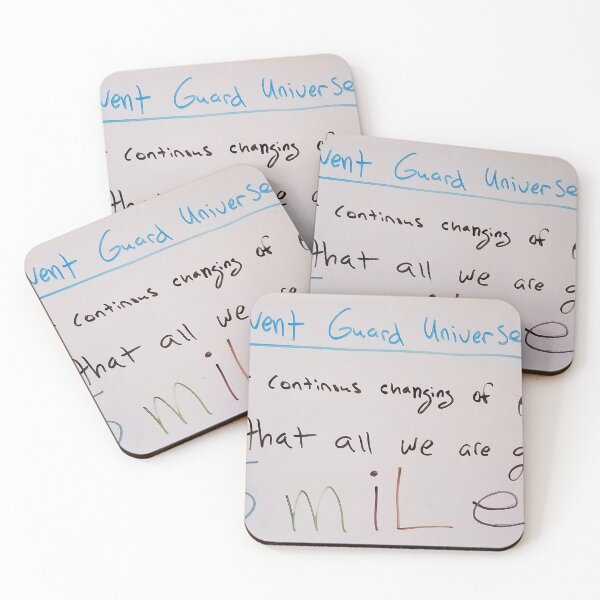 vent Guard Universe
continous changing
vent Guard Universe
continous changing of
that all we are g
vent Guard Universe
continous changing of
that all we are
miL
vent Guard Universe
continous changing of
that all we are g
SmiLe